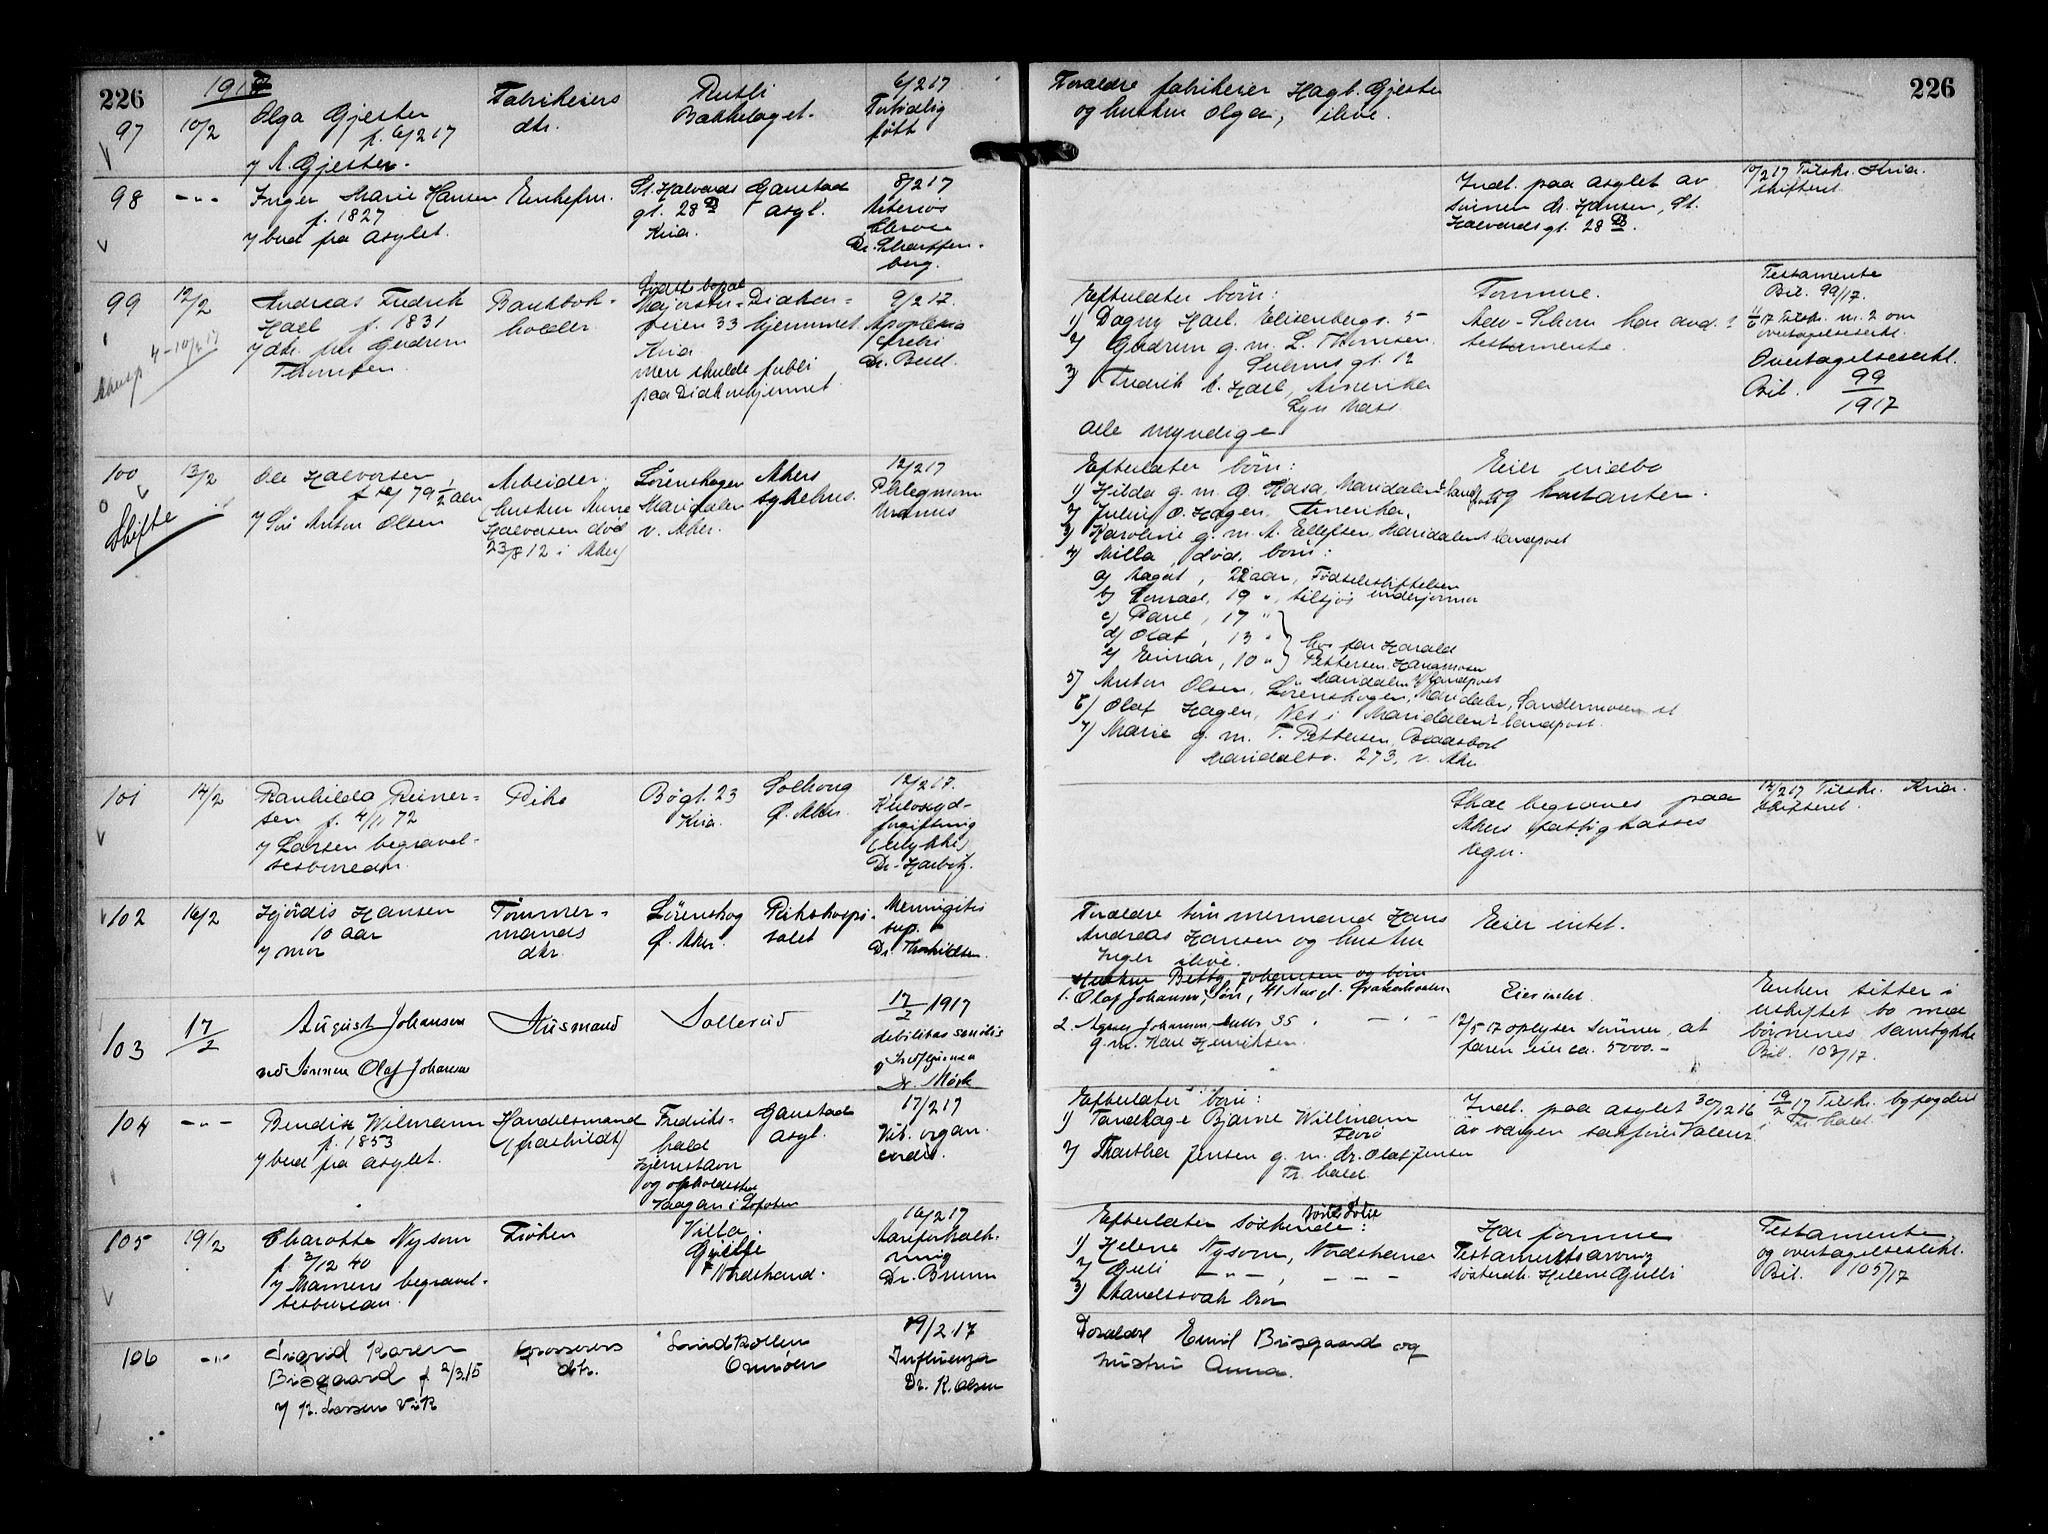 226
1917
97
10/2
Olga Gjester
f. 6/2 17
v/ A. Gjester.
Fabrikeiers
dtr.
Bækkelaget.
6/2 17
Fortidlig
født
Forældre fabrikeier Hagb. Gjester
og hustru Olga, ilive.
226
98
-"-
Inger Marie Hansen
f. 1827
v/ bud fra asylet.
Enkefru.
St. Halvards
gt. 28 B
Kria.
Gaustad
asyl.
8/2 17
Arterios
clerose
Dr. Scharffen-
berg.
Indl. paa asylet av
sønnen dr. Hansen, St.
Halvards gt. 28 B.
10/2 17 Tilskr. Kria.
skifteret.
99
12/2
Andreas Fredrik
Hael f. 1831
v/ dtr. fru Gudrun
Thomsen
Bankbok-
holder.
Sidste bopæl
Majorstu-
veien 33
Kria.
men skulde
paa Diakonhjemmet
Diakon-
hjemmet
9/2 17.
Apoplexia
cerebri
Dr. Bull.
Efterlater børn:
1) Dagny Hael. Elisenbergv. 5
2) Gudrun g. m. L. Thomsen.
Suhms gt. 12
3) Fredrik A. Hael, Amerika
Lyn Mass.
alle myndige
Formue.
testamente.
Testamente
Bil. 99/17.
overtagelseserkl.
Overtagelseserkl.
Bil. 99/1917
100
13/2
Skifte
Ole Halvorsen
79 1/2 aar
v/ Søn Anton Olsen
Arbeider.
(hustru Anne
Halvorsen død
23/8 12 i Aker)
Lørenskogen
Maridalen
v. Aker.
Akers
sykehus.
12/2 17
Phlegmone
manus
Efterlater børn:
1) Hilda g. m. G. Hasa, Maridalens landpost
2) Julius O. Hagen, Amerika.
3) Karoline g. m. A. Ellefsen, Maridalens landpost
4) Milla, død, børn:
a) Aagot, 22 aar, Fødselsstiftelsen
b) Konrad, 19 " tilsjøs
c) Paul, 17 "
d) Olaf, 13 "
e) Einar, 10 "
hos far Harald
Pettersen,
Maridalens landpost
5) Anton Olsen, Lørenskogen, Maridalen, Sandermosen st
6) Olaf Hagen, Nes i Maridalens landpost.
7) Marie g. m. T. Pettersen,
Maridalsv. 273, v. Aker
Eier indbo
og kontanter.
101
14/2
Ranhilda Reiner-
sen f. 4/11 72
v/ Larsen begravel-
sesbureau.
Pike
Bøgt. 23
Kria.
Solhaug
Ø. Aker.
12/2 17.
Kulosyd-
forgiftning
(ulykke)
Dr. Harbitz.
Skal begraves paa
Akers fattigkasses
regn.
14/2 17 Tilskr. Kria.
skifteret.
102
16/2
Hjørdis Hansen
10 aar
v/ mor
Tømmer-
mands
dtr.
Lørenskog
Ø. Aker.
Rikshospi-
talet
Meningitis
sup.
Dr. Thorkildsen.
Forældre tømmermand Hans
Andreas Hansen og hustru
Inger ilive.
Eier intet.
103
17/2
August Johansen
ved Sønnen Olaf Johansen
Husmand
Sollerud
17/2 1917
debilitas senilis
Dr. Mørk
Hustru Betty Johansen og børn
1. Olaf Johansen, Søn, 41 Aar g.
2. Agnes Johansen, Datter, 35
g. m. Karl Henriksen.
Eier intet
12/5 17 oplyser sønnen, at
faren eier ca. 5000.-
Enken sitter i
uskiftet bo med
børnenes samtykke
Bil. 103/17.
104
-"-
Bendix Wilmann
f. 1853
v/ bud fra asylet.
Handelsmand
(fraskildt)
Fredriks-
hald
Hjemstavn
og opholdssted
Vaagan i Lofoten
Gaustad
asyl.
17/2 17
Vit. organ.
cordis.
Efterlater børn:
1) Tandlæge Bjarne Willmann
Florø
2) Martha Jensen g. m. dr. Olaf Jensen
Fr. hald
Indl. paa asylet 30/12 16
av vergen
19/2 17 Tilskr. byfogden
Fr. hald.
105
19/2
Charotte Nysom
f. 3/12 40
v/ Mamens begravel-
sesbureau.
Frøken
Villa
Gjelle
Nordstrand.
16/2 17
Aareforkalk-
ning
Dr. Bruun
Efterlater søskende:
1) Helene Nysom, Nordstrand
2) Gulli -"-, - - -
3) Aandssvak bror
Har formue
Testamentsarving
søsterdt. Helene Gulli
Testamente
og overtagelseserkl.
Bil. 105/17
106
-"-
Sigrid Karen
Bisgaard f. 2/3 15
v/ K. Larsen Vik
Grosserers
dtr.
Ormøen
19/2 17
Influenza
Dr. K. Olsen
Forældre Emil Bisgaard og
hustru Anna.